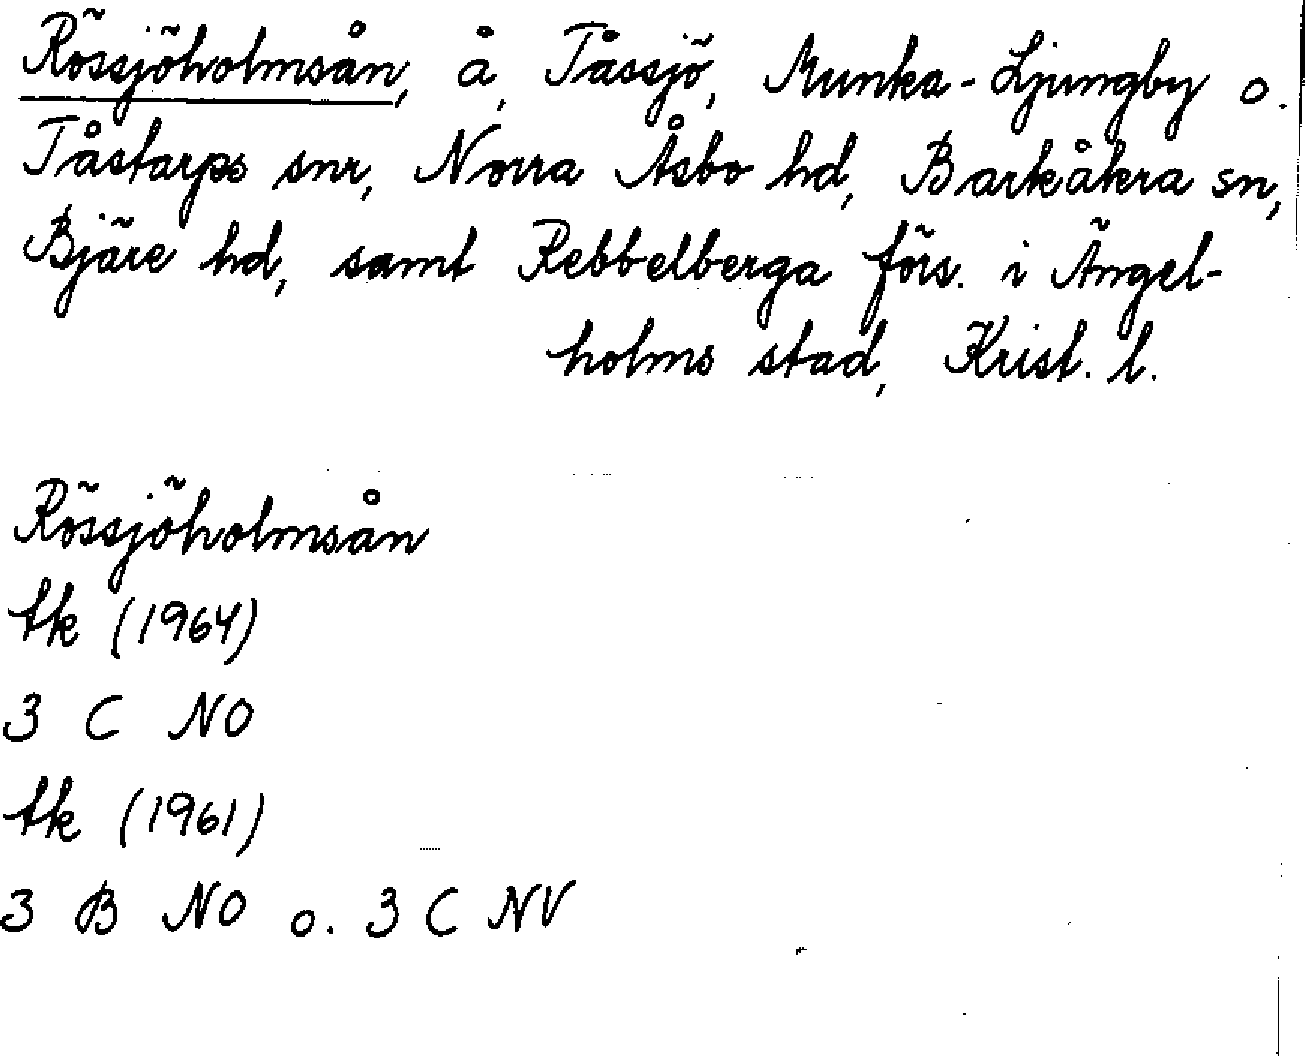 Rössjöholmsån, å, Tåssjö, Munka-Ljungby o.
Tåstarps snr, Norra Åsbo hd, Barkåkra sn,
Bjäre hd, samt Rebbelberga förs. i Ängel-
holms stad, Krist. l.
Rössjöholmsån
tk (1964)
3 C NO
tk (1961)
3 B NO o. 3 C NV